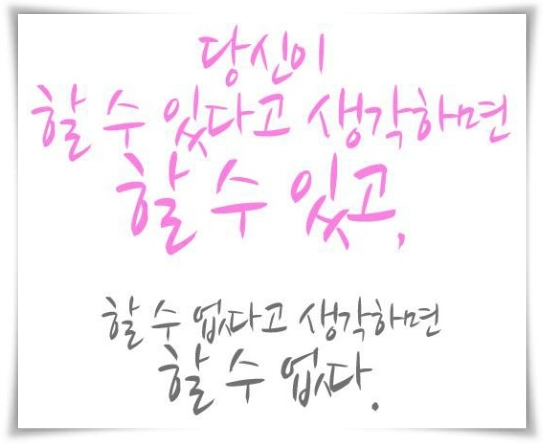 당신이
할 수 있다고 생각하면
할 수 있고,
할 수 없다고 생각하면
할 수 없다.